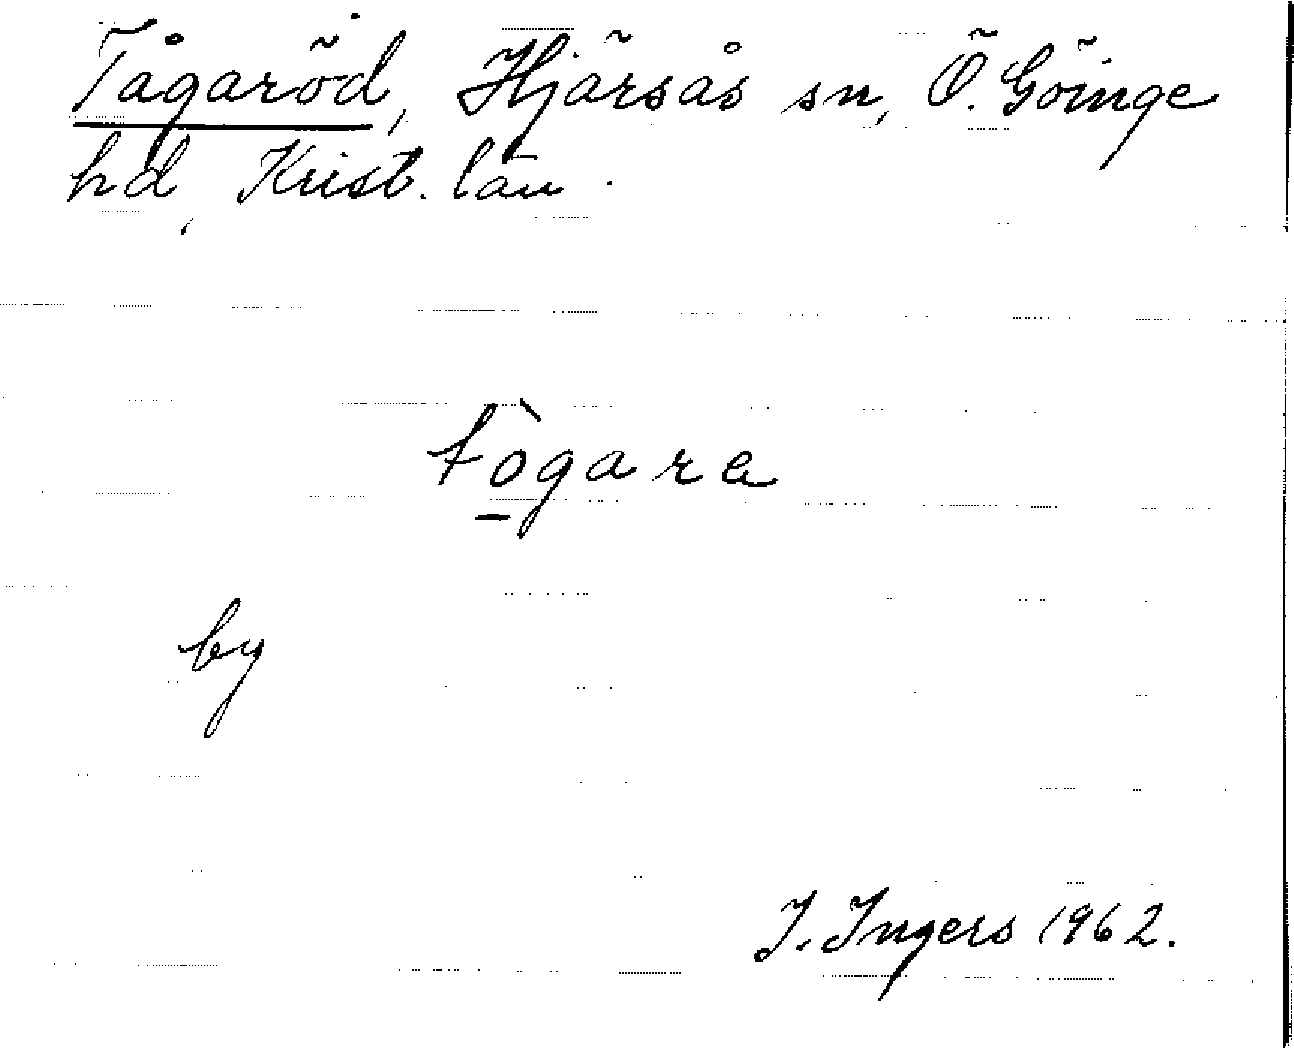 Tågaröd, Hjärsås sn, Ö. Göinge
hd, Krist. län.
tò̱gara
by
I. Ingers 1962.